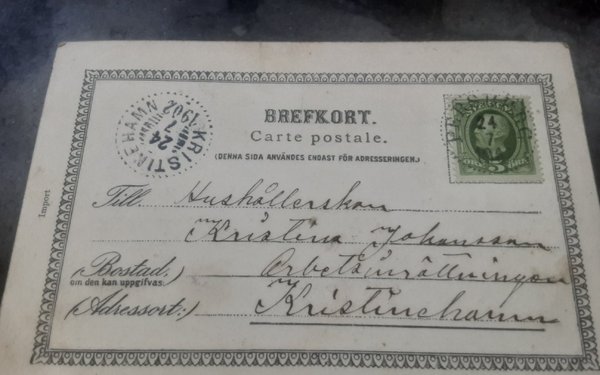 BREFKORT.
Carte postale.
(DENNA SIDA ANVÄNDES ENDAST FÖR ADRESSERINGEN.)
KRISTINEHAMN
24
7
1902
24
5 ÖRE
Import
Till Hushållerskan
Kristina Johansson
(Bostad:) Arbetsinrättningen
om den kan uppgifvas:
(Adressort:) Kristinehamn